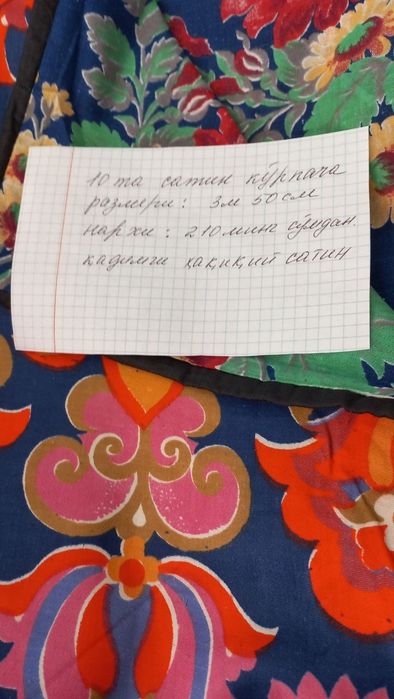 10 та сатин кўрпача
размери: 3м 50см
нархи: 210минг сўмдан.
қадимги ҳақиқий сатин